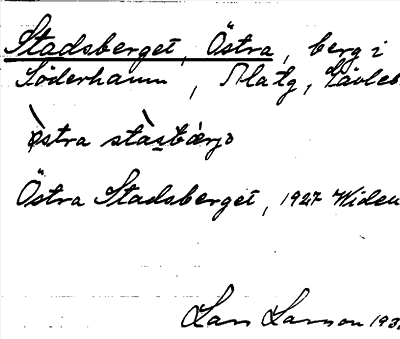 Stadsberget, Östra, berg i
Söderhamn,
östra stasbærjə
Östra Stadsberget, 1927 Widen
Lars Larsson 193